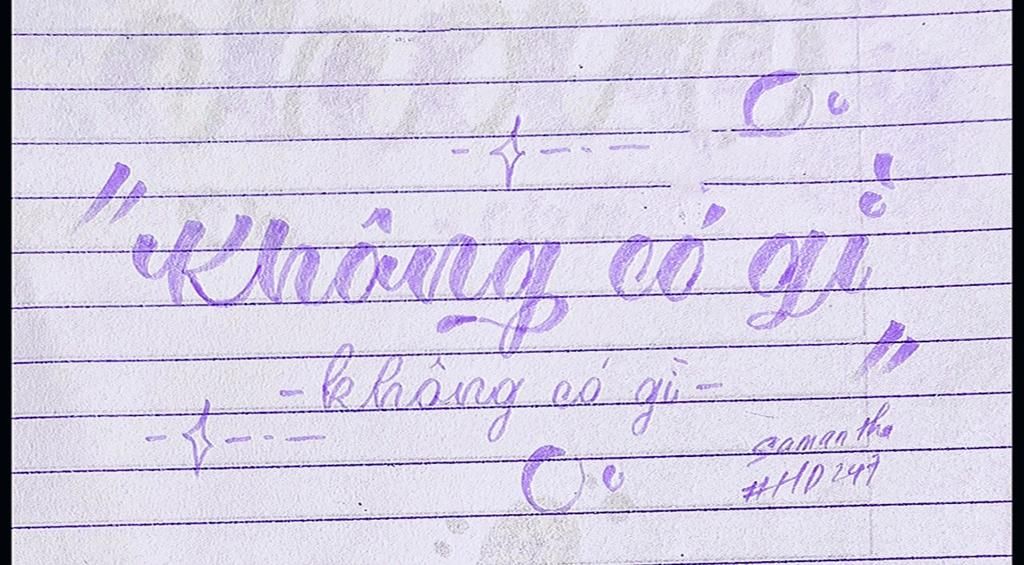 "Không có gì"
-không có gì-
Samantha
#HD247